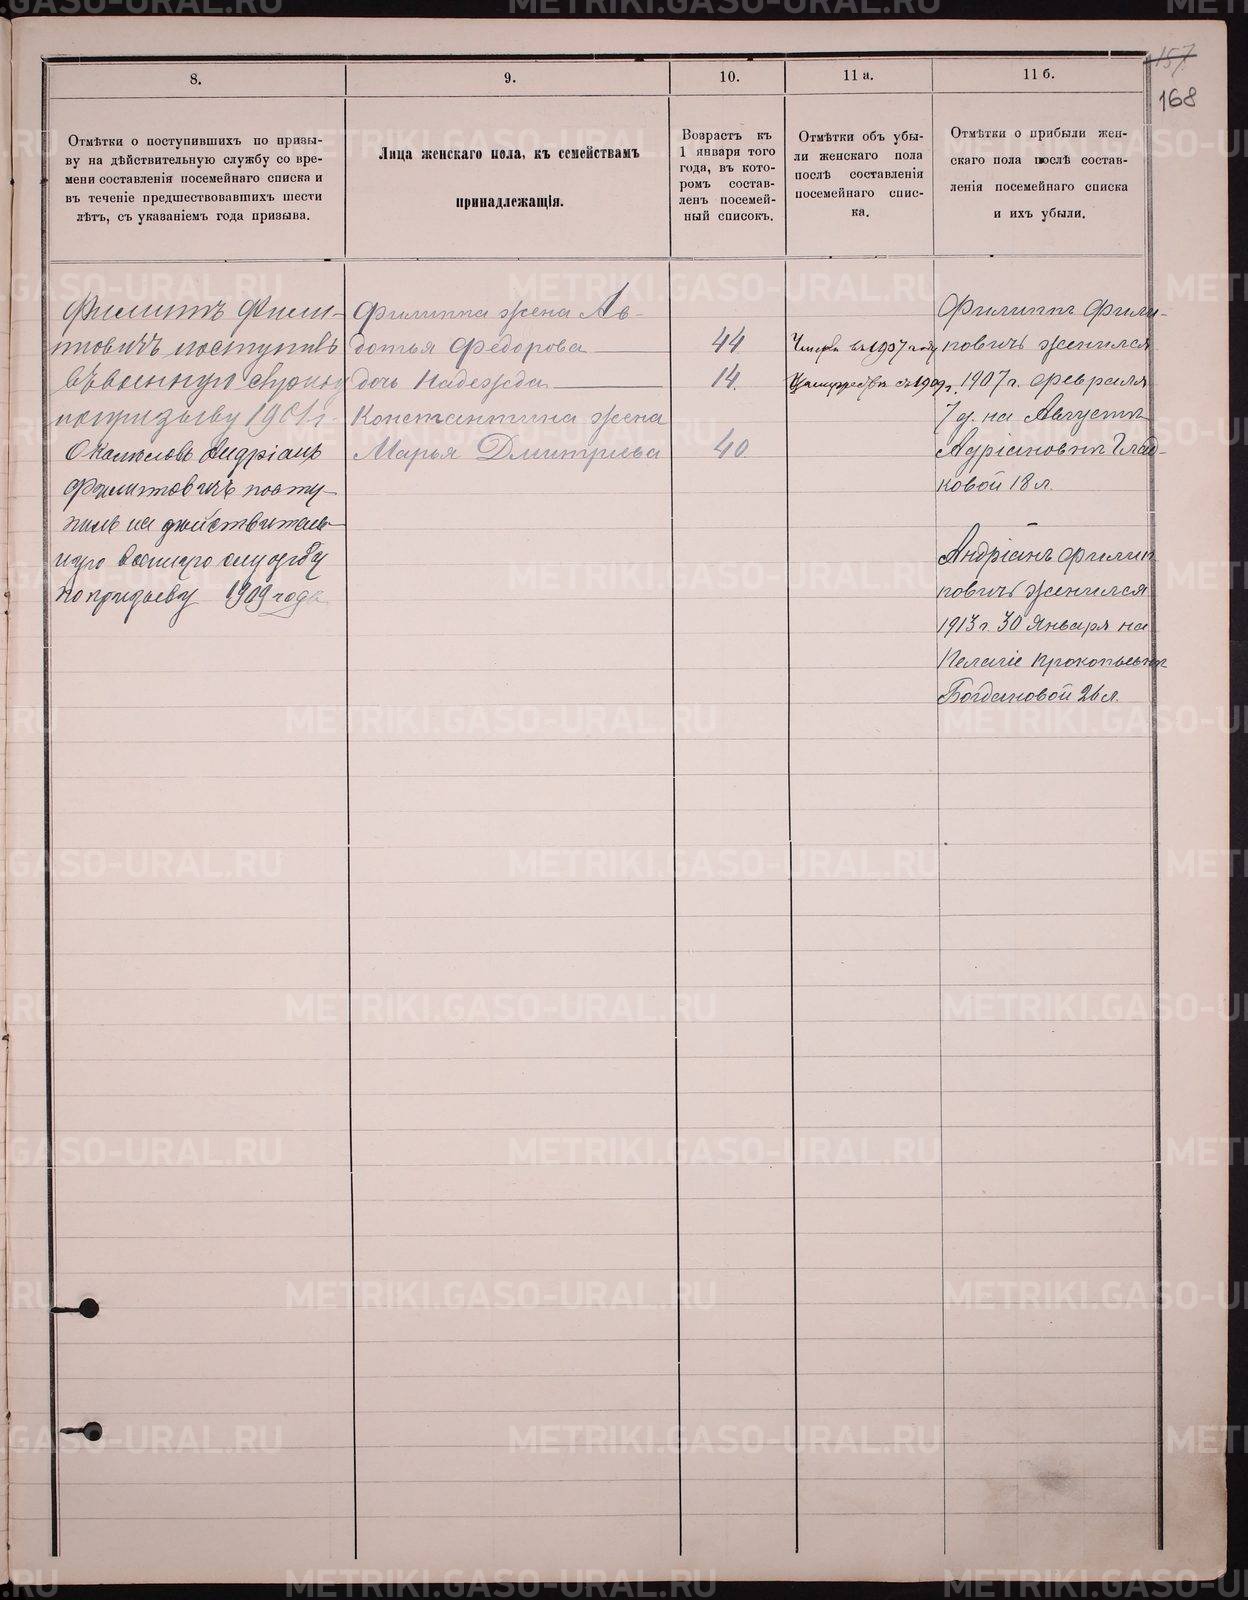 157
168
8.
9.
10.
11 а.
11 б.
Отмѣтки о поступившихъ по призы-
ву на дѣйствительную службу со вре-
мени составленія посемейнаго списка и
въ теченіе предшествовавшихъ шести
лѣтъ, съ указаніемъ года призыва.
Лица женскаго пола, къ семействамъ
принадлежащія.
Возрастъ къ
1 января того
года, въ кото-
ромъ состав-
ленъ посемей-
ный списокъ.
Отмѣтки объ убы-
ли женскаго пола
послѣ составленія
посемейнаго спис-
ка.
Отмѣтки о прибыли жен-
скаго пола послѣ состав-
ленія посемейнаго списка
и ихъ убыли.
Филиппъ Фили-
пповичъ поступилъ
въ военную службу
по призыву 1901 г.
Андріанъ
Филипповичъ посту-
пилъ на дѣйствитель-
ную военную службу
по призыву 1909 года
Филиппа жена Ав-
дотья Федорова
дочь Надежда
Константина жена
Марья Дмитріева
44
14
40
въ 1907 году
въ 1909 г.
Филиппъ Фили-
повичъ женился
1907 г. февраля
7 д. на Августѣ
Андріановнѣ Глад-
ковой 18 л.
Андріанъ Филип
повичъ женился
1913 г. 30 Января на
Пелагіе Прокопьевнѣ
Богдановой 26 л.
METRIKI.GASO-URAL.RU